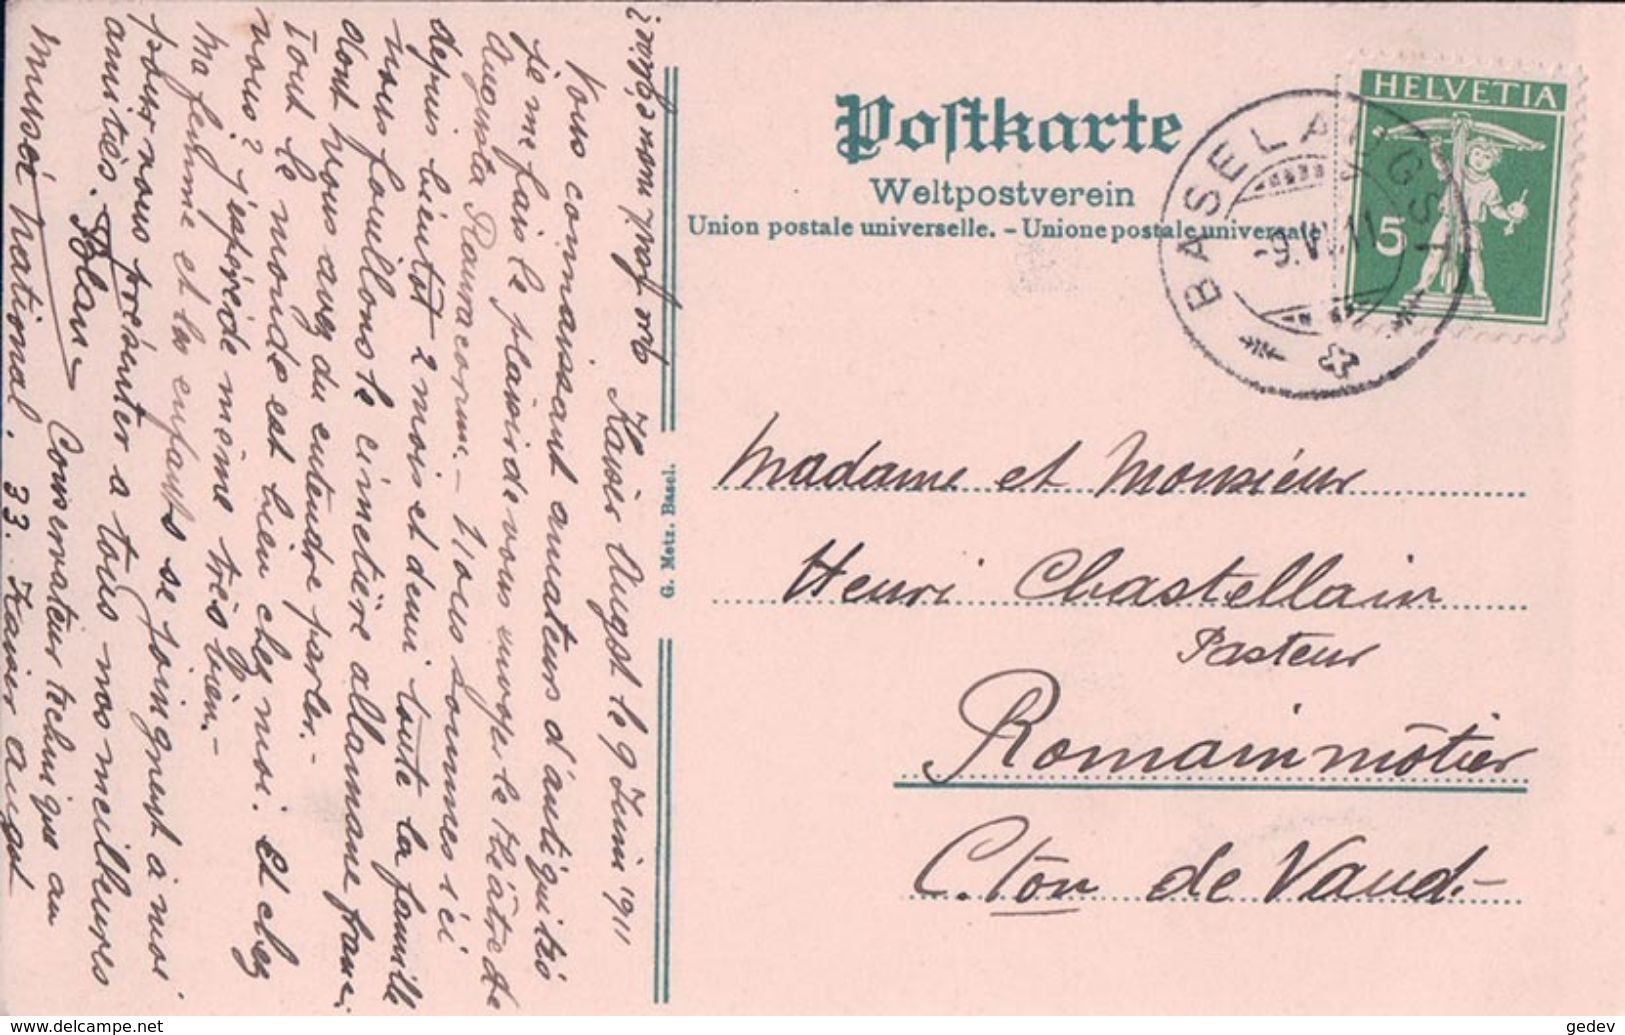 Postkarte
Weltpostverein
Union postale universelle. – Unione postale universale
BASELAUGST
-9.VI.11
HELVETIA
5
G. Metz. Basel.
Madame et Monsieur
Henri Chastellain
Pasteur
Romainmôtier
C.ton de Vaud.-
Kaiser Augst le 9 Juin 1911
Vous connaissant amateurs d'antiquités
je me fais le plaisir de vous envoyer le théâtre de
Augusta Rauracorum. - Nous sommes ici
depuis bientôt 2 mois et demi toute la famille
nous fouillons le cimetière allamane franc
dont vous avez du entendre parler. -
Tout le monde est bien chez moi. et chez
vous? j'espère de même très bien. -
Ma femme et les enfants se joignent à moi
pour nous présenter a tous nos meilleures
amitiés.
Conservateur technique au
Musée National. 33. Kaiser augst
gedev
www.delcampe.net